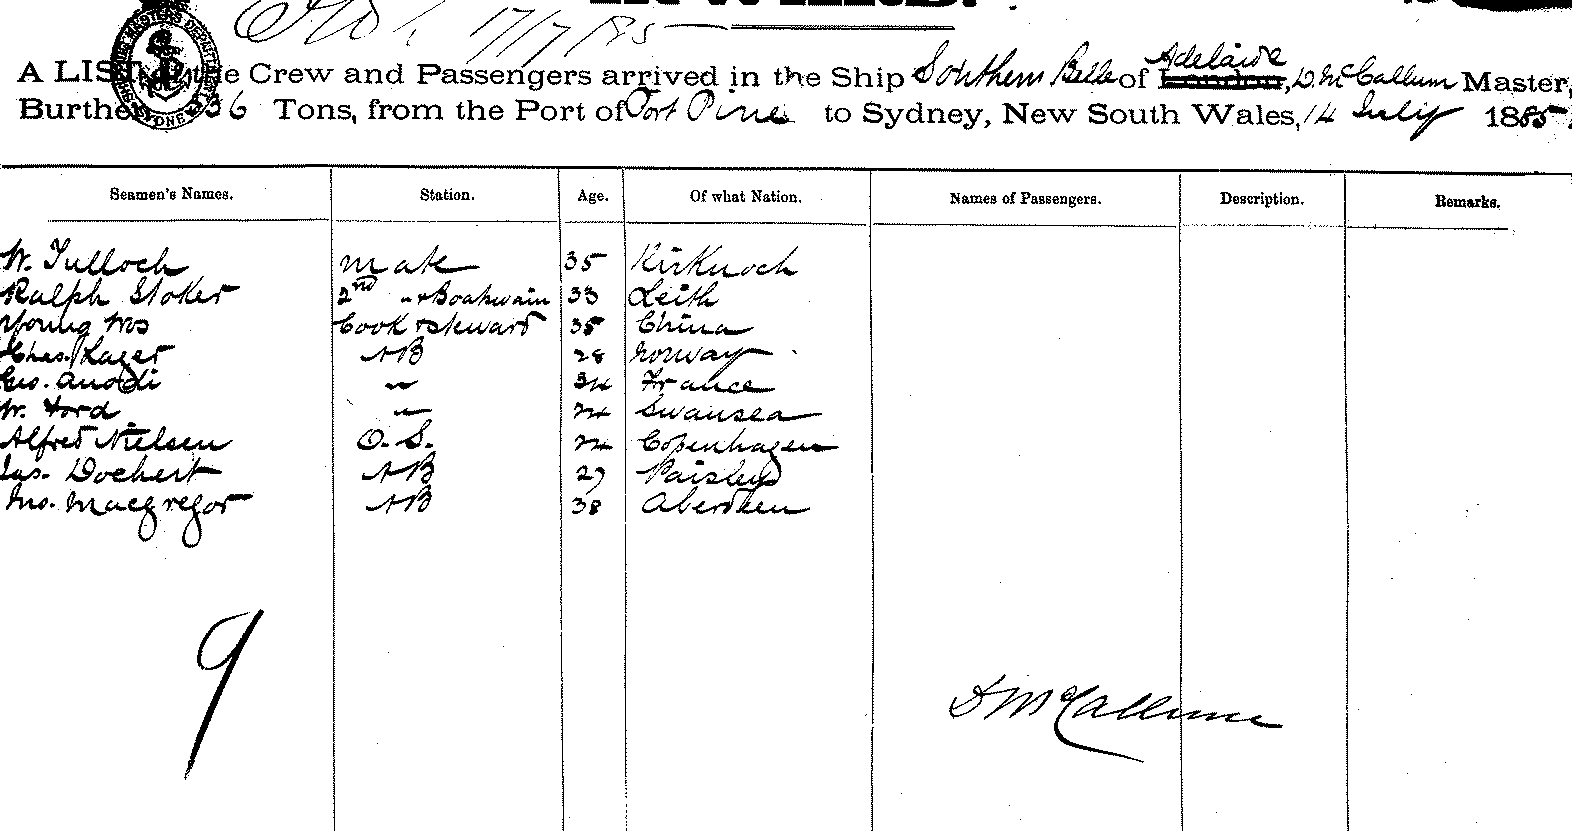 17/7/85
A LIST of the Crew and Passengers arrived in the Ship Southern Belle of Adelaide, D. McCallum Master,
Burthen 336 Tons, from the Port of Port Pirie to Sydney, New South Wales, 14 July 1885.
Seamen's Names. Station. Age. Of what Nation. Names of Passengers. Description. Remarks.
W. Tulloch mate 35
Ralph Stoker 2nd " & Boatswain 33 Leith
Young Cook & steward 35 China
Chas. Lager AB 28 Norway
Geo. Anodi " 34 France
W. Ford " 24 Swansea
Alfred Nielsen O.S. 24 Copenhagen
Jas. Dochert AB 27 Paisley
Jno. Macgregor AB 38 Aberdeen
9
D McCallum